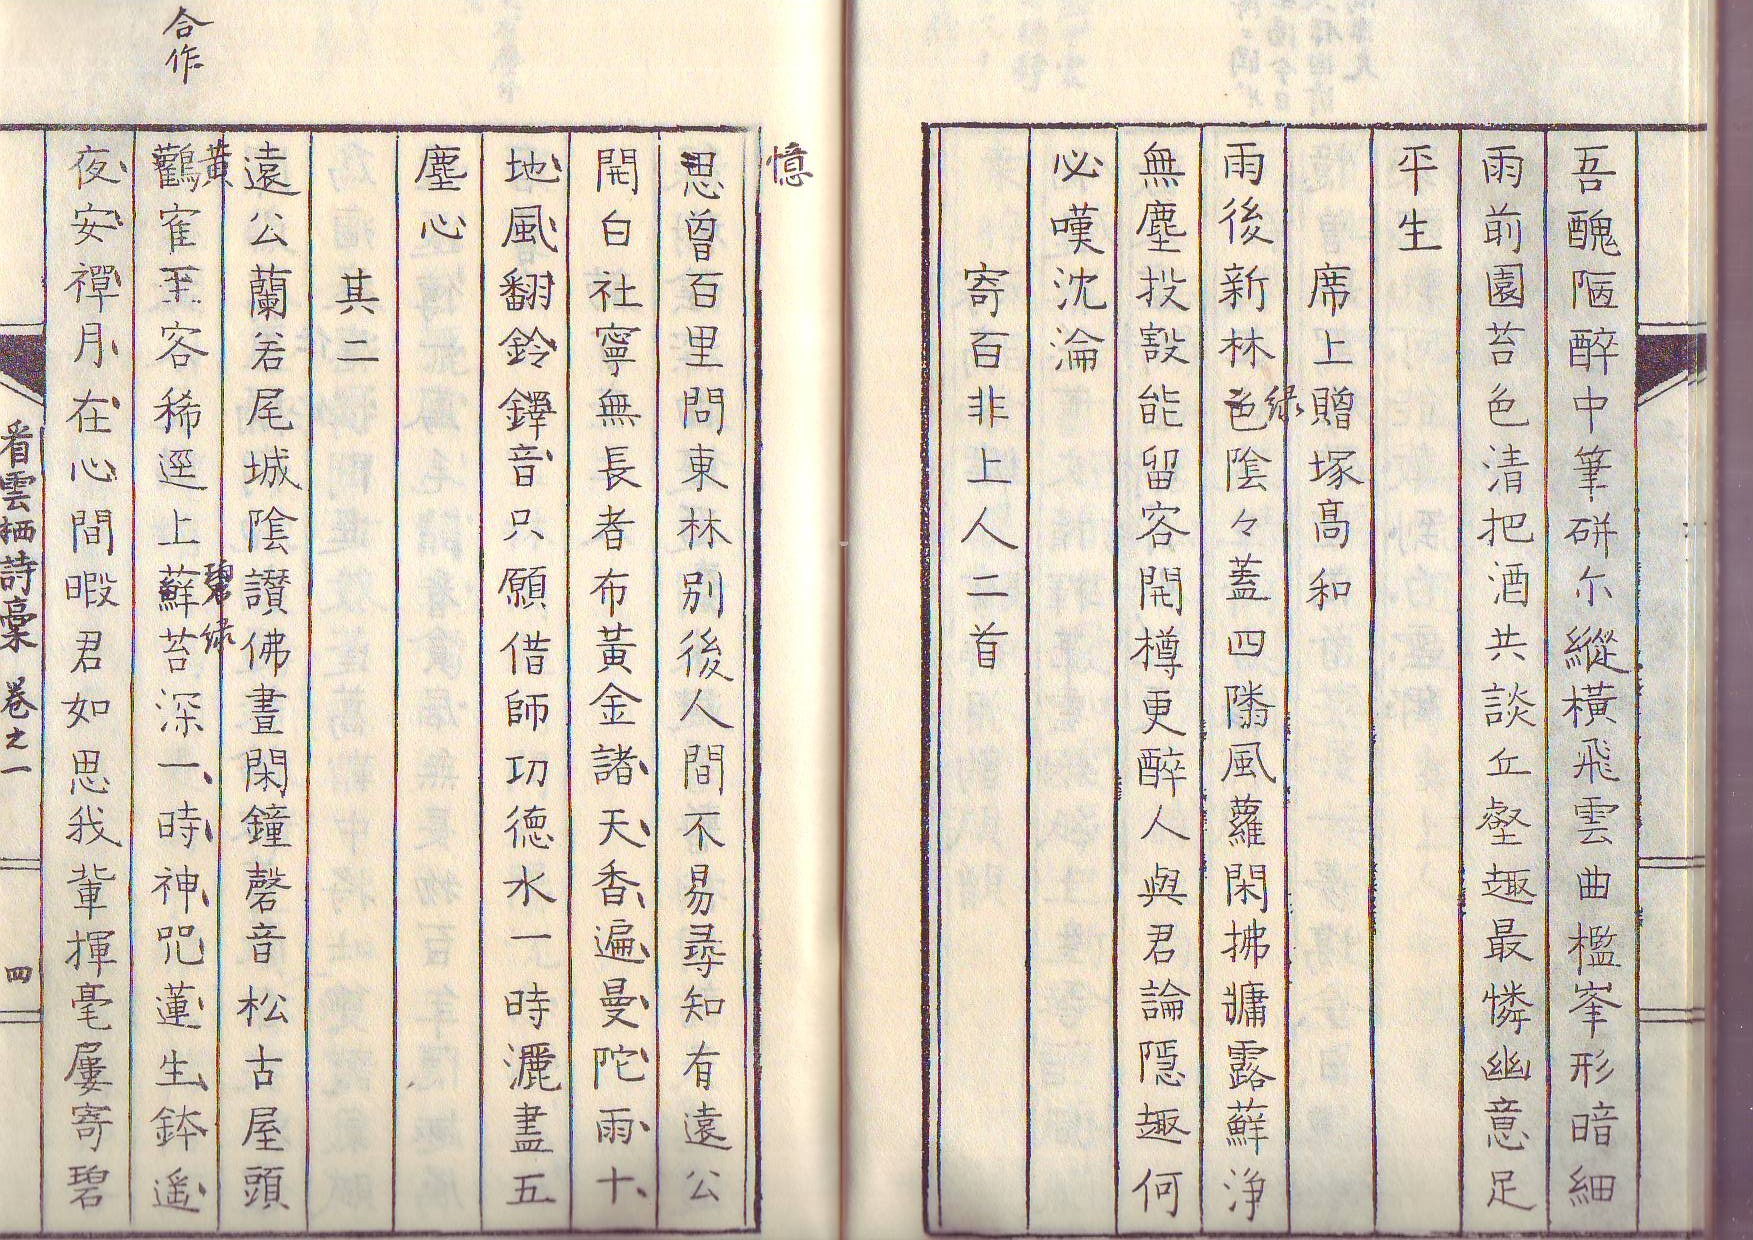 吾醜陋醉中筆硏尓縱橫飛雲曲檻峯形暗細
雨前園苔色清把酒共談丘壑趣最憐幽意足
平生
席上贈塚高和
雨後新林色陰々蓋四隣風蘿閑拂牗露蘚淨
綠
無塵投轂能留客開樽更醉人與君論隱趣何
必嘆沈淪
寄百非上人二首
憶
思曾百里問東林別後人間不易尋知有遠公
開白社寧無長者布黃金諸天香遍曼陀雨十
地風翻鈴鐸音只願借師功德水一時灑盡五
塵心
其二
遠公蘭若尾城陰讚佛晝閑鐘磬音松古屋頭
黃
碧綠
鸛寉至客稀逕上蘚苔深一時神咒蓮生鉢遙
合作
夜安禪月在心間暇君如思我輩揮毫屢寄碧
看雲栖詩稾 卷之一 四